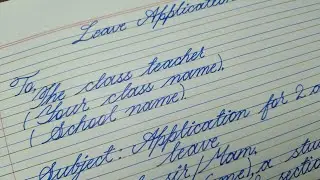 Leave Application
To,
The class teacher
(Your class name),
(School name).
Subject: Application for 2
leave
sir/Mam,
name), a
section